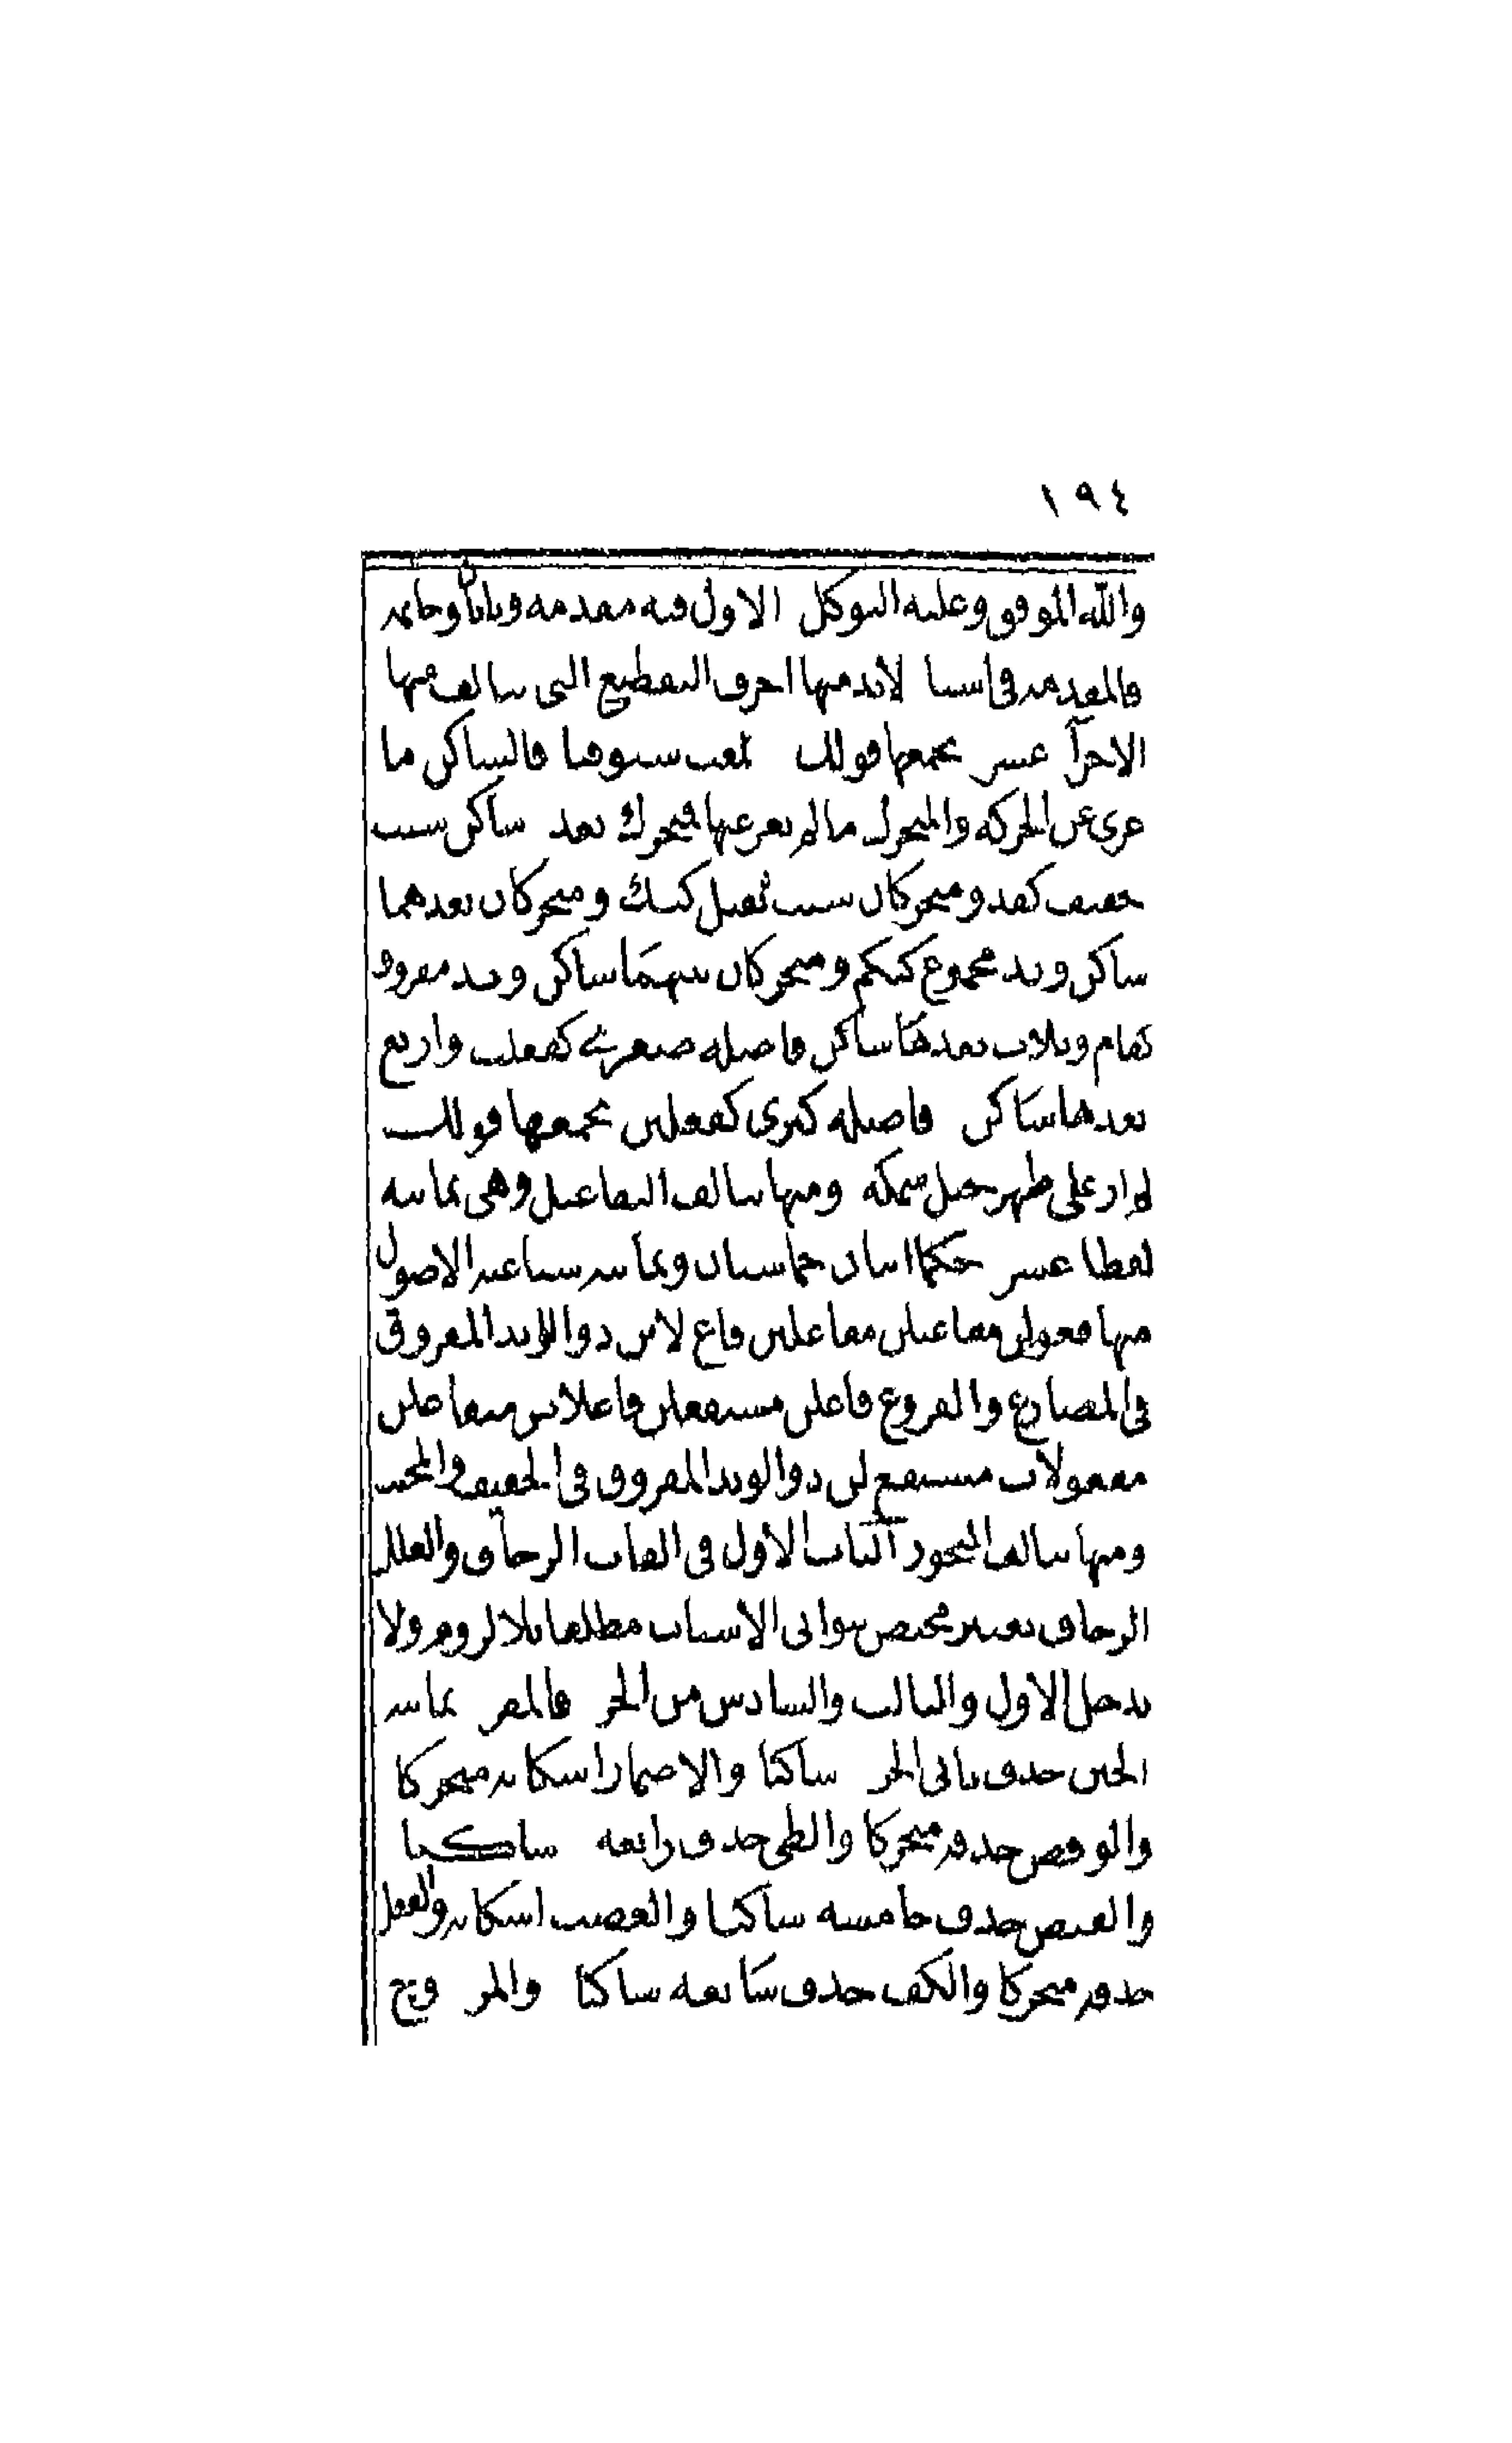 ١٩٤
والله الموفق وعليه التوكل الاول فيه مقدمة وبابان وخاتمة
فالمقدمة في اشيا لابد منها احرف التقطيع التي يتالف منها
الاجزآ عشر يجمعها قولك لمعت سيوفنا فالساكن ما
عرى عن الحركة والمتحرك ما لم يعر عنها فمتحرك بعد ساكن سبب
خفيف كقد ومتحركان سبب ثقيل كبك ومتحركان بعدهما
ساكن وتد مجموع كبكم ومتحركان بينهما ساكن وتد مفروق
كقام وثلاث بعدها ساكن فاصلة صغرى كفعلت واربع
بعدها ساكن فاصلة كبرى كفعلتن يجمعها قولك
لم ار على ظهر جبل سمكة ومنها يتالف التفاعيل وهي ثمانية
لفظا عشر حكما اثنان خماسيان وثمانية سباعية الاصول
منها فعولن مفاعيلن مفاعلتن فاع لاتن ذو الوتد المفروق
في المضارع والفروع فاعلن مستفعلن فاعلاتن متفاعلن
مفعولات مستفع لن ذو الوتد المفروق في الخفيف والمجتث
ومنها يتالف البحور الباب الاول في القاب الزحاف والعلل
الزحاف تغيير مختص بثواني الاسباب مطلقا بلا لزوم ولا
يدخل الاول والثالث والسادس من الجز فالمفر ثمانية
الخبن حذف ثاني الجز ساكنا والاضمار اسكانه متحركا
والوقص حذفه متحركا والطي حذف رابعه ساكنا
والقبض حذف خامسه ساكنا والعصب اسكانه والعقل
حذفه متحركا والكف حذف سابعه ساكنا والمز وج